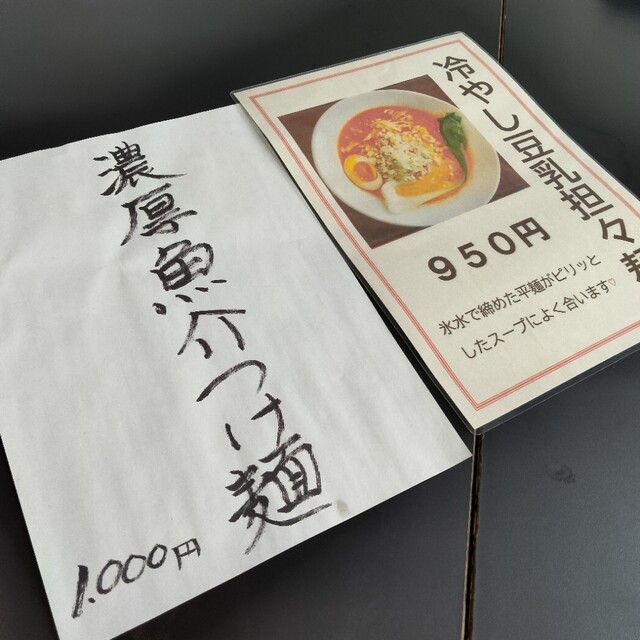 濃厚魚介つけ麺
1.000円
冷やし豆乳担々麺
950円
氷水で締めた平麺がピリッと
したスープによく合います♡